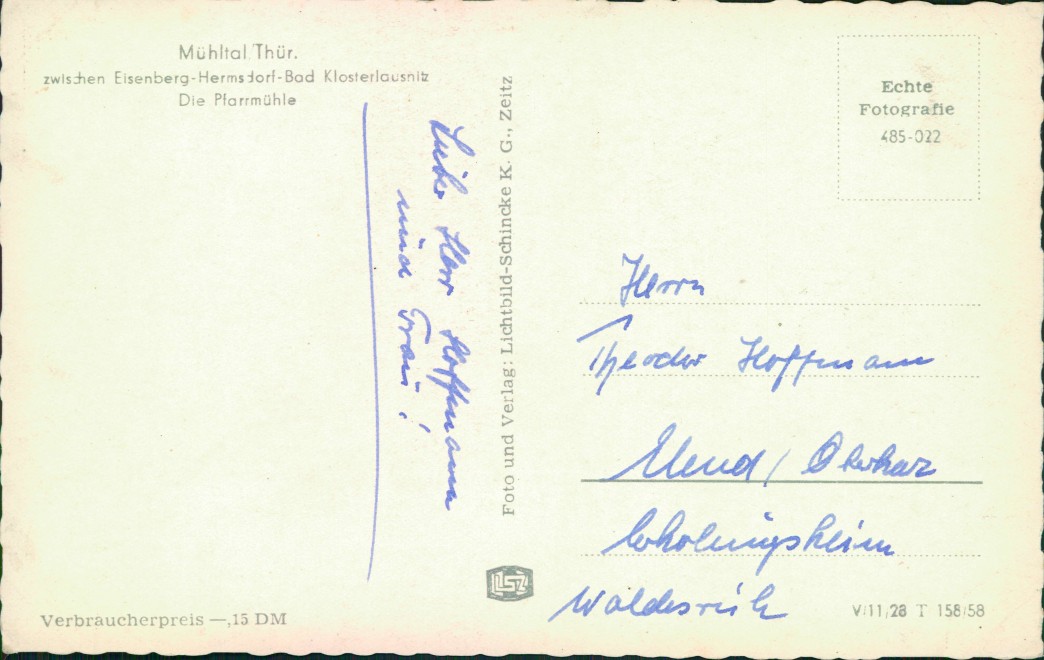 Mühltal Thür.
zwischen Eisenberg-Hermsdorf-Bad Klosterlausnitz
Die Pfarrmühle
Lieber Herr Hoffmann
und Frau!
Foto und Verlag: Lichtbild-Schincke K. G., Zeitz
Echte
Fotografie
485-022
Herrn
Theodor Hoffmann
Elend / Oberharz
Erholungsheim
Waldesruh
LSZ
Verbraucherpreis —,15 DM
V/11/28 T 158/58